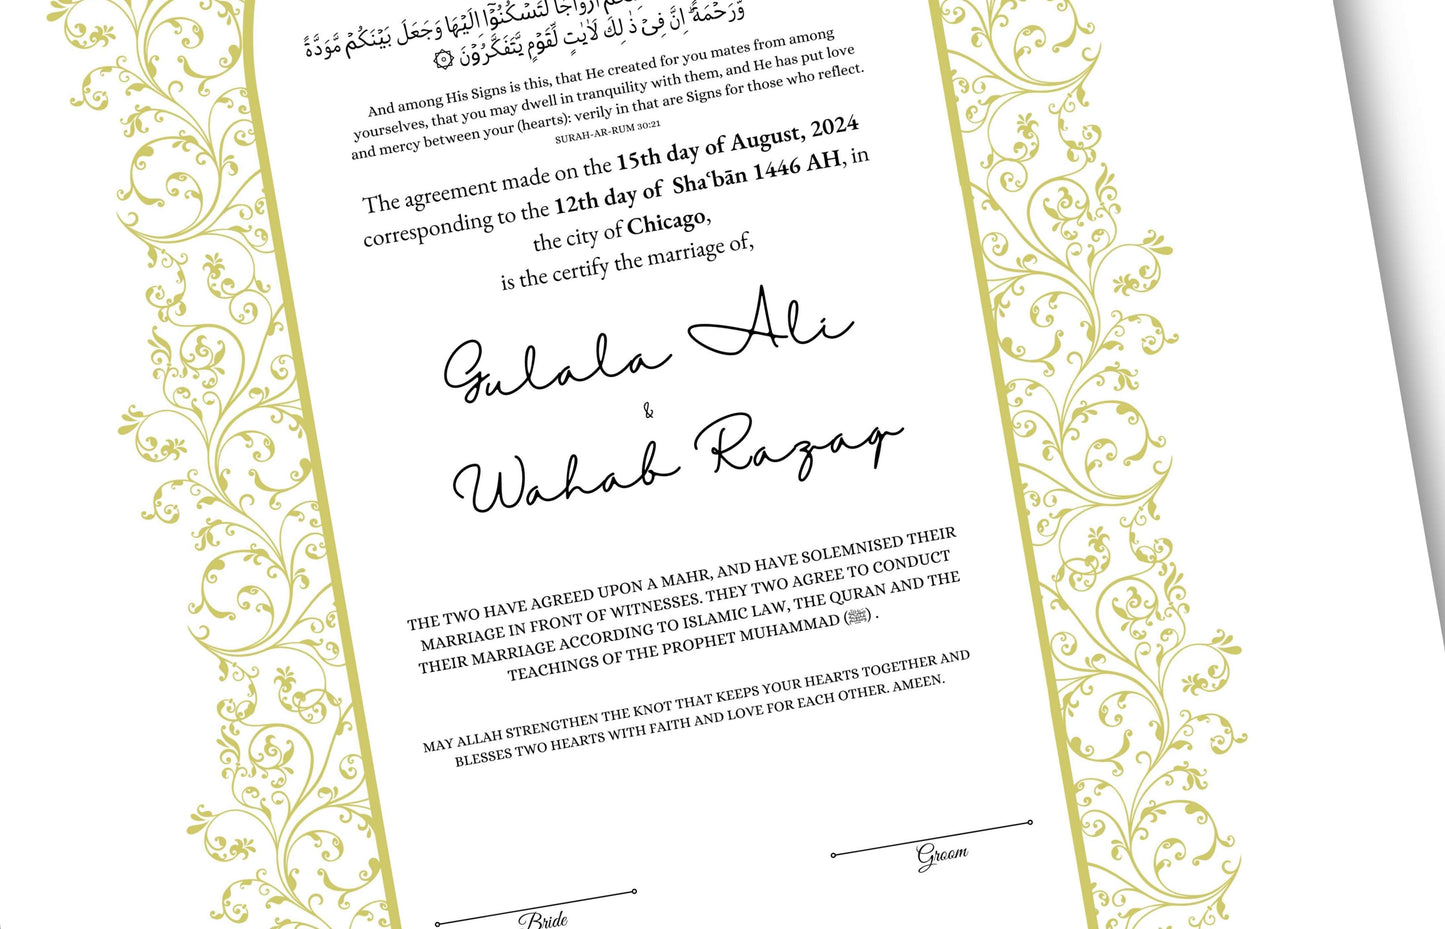 أَزْوَاجًا لِّتَسْكُنُوٓا إِلَيْهَا وَجَعَلَ بَيْنَكُمْ مَّوَدَّةً
وَّرَحْمَةً ۗ إِنَّ فِىْ ذٰلِكَ لَاٰيٰتٍ لِّقَوْمٍ يَّتَفَكَّرُوْنَ
And among His Signs is this, that He created for you mates from among
yourselves, that you may dwell in tranquility with them, and He has put love
and mercy between your (hearts): verily in that are Signs for those who reflect.
SURAH-AR-RUM 30:21
The agreement made on the 15th day of August, 2024
corresponding to the 12th day of Sha‘bān 1446 AH, in
the city of Chicago,
is the certify the marriage of,
Gulala Ali
&
Wahab Razaq
THE TWO HAVE AGREED UPON A MAHR, AND HAVE SOLEMNISED THEIR
MARRIAGE IN FRONT OF WITNESSES. THEY TWO AGREE TO CONDUCT
THEIR MARRIAGE ACCORDING TO ISLAMIC LAW, THE QURAN AND THE
TEACHINGS OF THE PROPHET MUHAMMAD (ﷺ) .
MAY ALLAH STRENGTHEN THE KNOT THAT KEEPS YOUR HEARTS TOGETHER AND
BLESSES TWO HEARTS WITH FAITH AND LOVE FOR EACH OTHER. AMEEN.
Groom
Bride